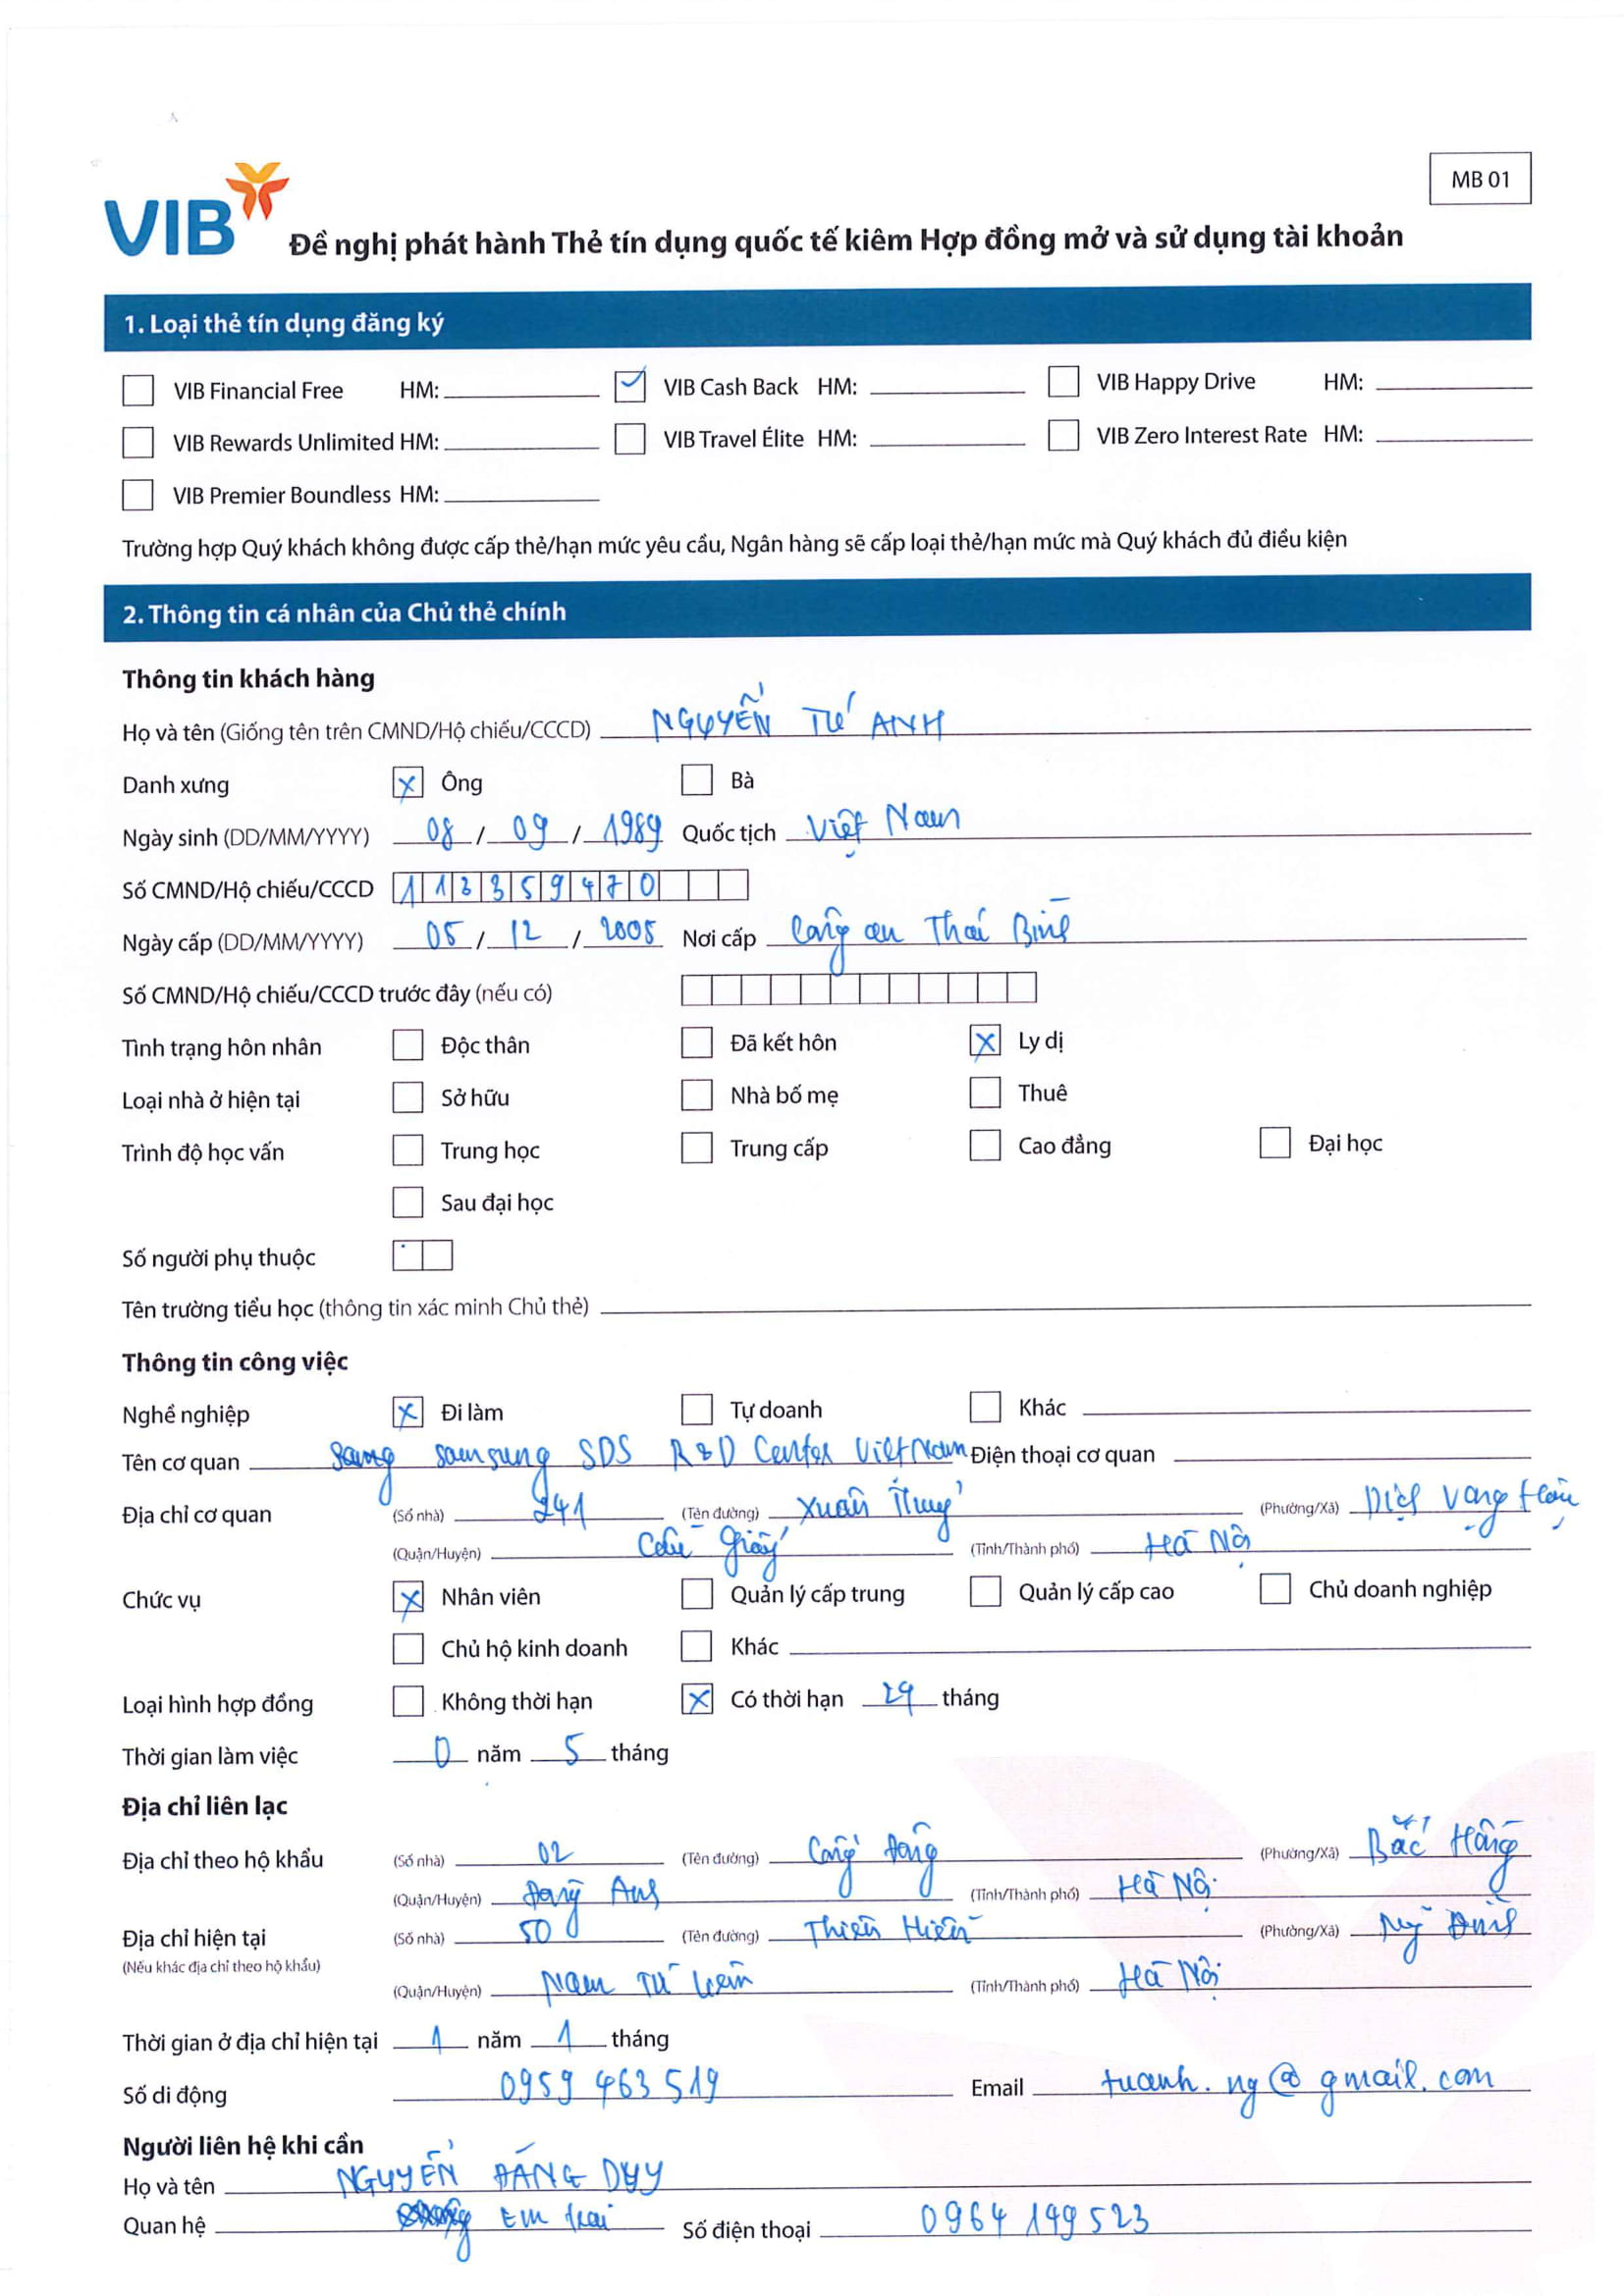 MB 01
VIB
Đề nghị phát hành Thẻ tín dụng quốc tế kiêm Hợp đồng mở và sử dụng tài khoản
1. Loại thẻ tín dụng đăng ký
VIB Financial Free HM: VIB Cash Back HM: VIB Happy Drive HM:
VIB Rewards Unlimited HM: VIB Travel Élite HM: VIB Zero Interest Rate HM:
VIB Premier Boundless HM:
Trường hợp Quý khách không được cấp thẻ/hạn mức yêu cầu, Ngân hàng sẽ cấp loại thẻ/hạn mức mà Quý khách đủ điều kiện
2. Thông tin cá nhân của Chủ thẻ chính
Thông tin khách hàng
Họ và tên (Giống tên trên CMND/Hộ chiếu/CCCD) NGUYỄN TÚ ANH
Danh xưng Ông Bà
Ngày sinh (DD/MM/YYYY) 08 / 09 / 1989 Quốc tịch Việt Nam
Số CMND/Hộ chiếu/CCCD 113359470
Ngày cấp (DD/MM/YYYY) 05 / 12 / 2005 Nơi cấp Công an Thái Bình
Số CMND/Hộ chiếu/CCCD trước đây (nếu có)
Tình trạng hôn nhân Độc thân Đã kết hôn Ly dị
Loại nhà ở hiện tại Sở hữu Nhà bố mẹ Thuê
Trình độ học vấn Trung học Trung cấp Cao đẳng Đại học
Sau đại học
Số người phụ thuộc
Tên trường tiểu học (thông tin xác minh Chủ thẻ)
Thông tin công việc
Nghề nghiệp Đi làm Tự doanh Khác
Tên cơ quan Samsung SDS R&D Center Việt Nam Điện thoại cơ quan
Địa chỉ cơ quan (Số nhà) 241 (Tên đường) Xuân Thuỷ (Phường/Xã) Dịch Vọng Hậu
(Quận/Huyện) Cầu Giấy (Tỉnh/Thành phố) Hà Nội
Chức vụ Nhân viên Quản lý cấp trung Quản lý cấp cao Chủ doanh nghiệp
Chủ hộ kinh doanh Khác
Loại hình hợp đồng Không thời hạn Có thời hạn 29 tháng
Thời gian làm việc 0 năm 5 tháng
Địa chỉ liên lạc
Địa chỉ theo hộ khẩu (Số nhà) 02 (Tên đường) Cổng Đông (Phường/Xã) Bắc Hồng
(Quận/Huyện) Đông Anh (Tỉnh/Thành phố) Hà Nội
Địa chỉ hiện tại (Số nhà) 50 (Tên đường) Thiên Hiền (Phường/Xã) Mỹ Đình
(Nếu khác địa chỉ theo hộ khẩu)
(Quận/Huyện) Nam Từ Liêm (Tỉnh/Thành phố) Hà Nội
Thời gian ở địa chỉ hiện tại 1 năm 1 tháng
Số di động 0959 463 519 Email tuanh.ng@gmail.com
Người liên hệ khi cần
Họ và tên NGUYỄN ĐĂNG DUY
Quan hệ Em trai Số điện thoại 0964 149 523